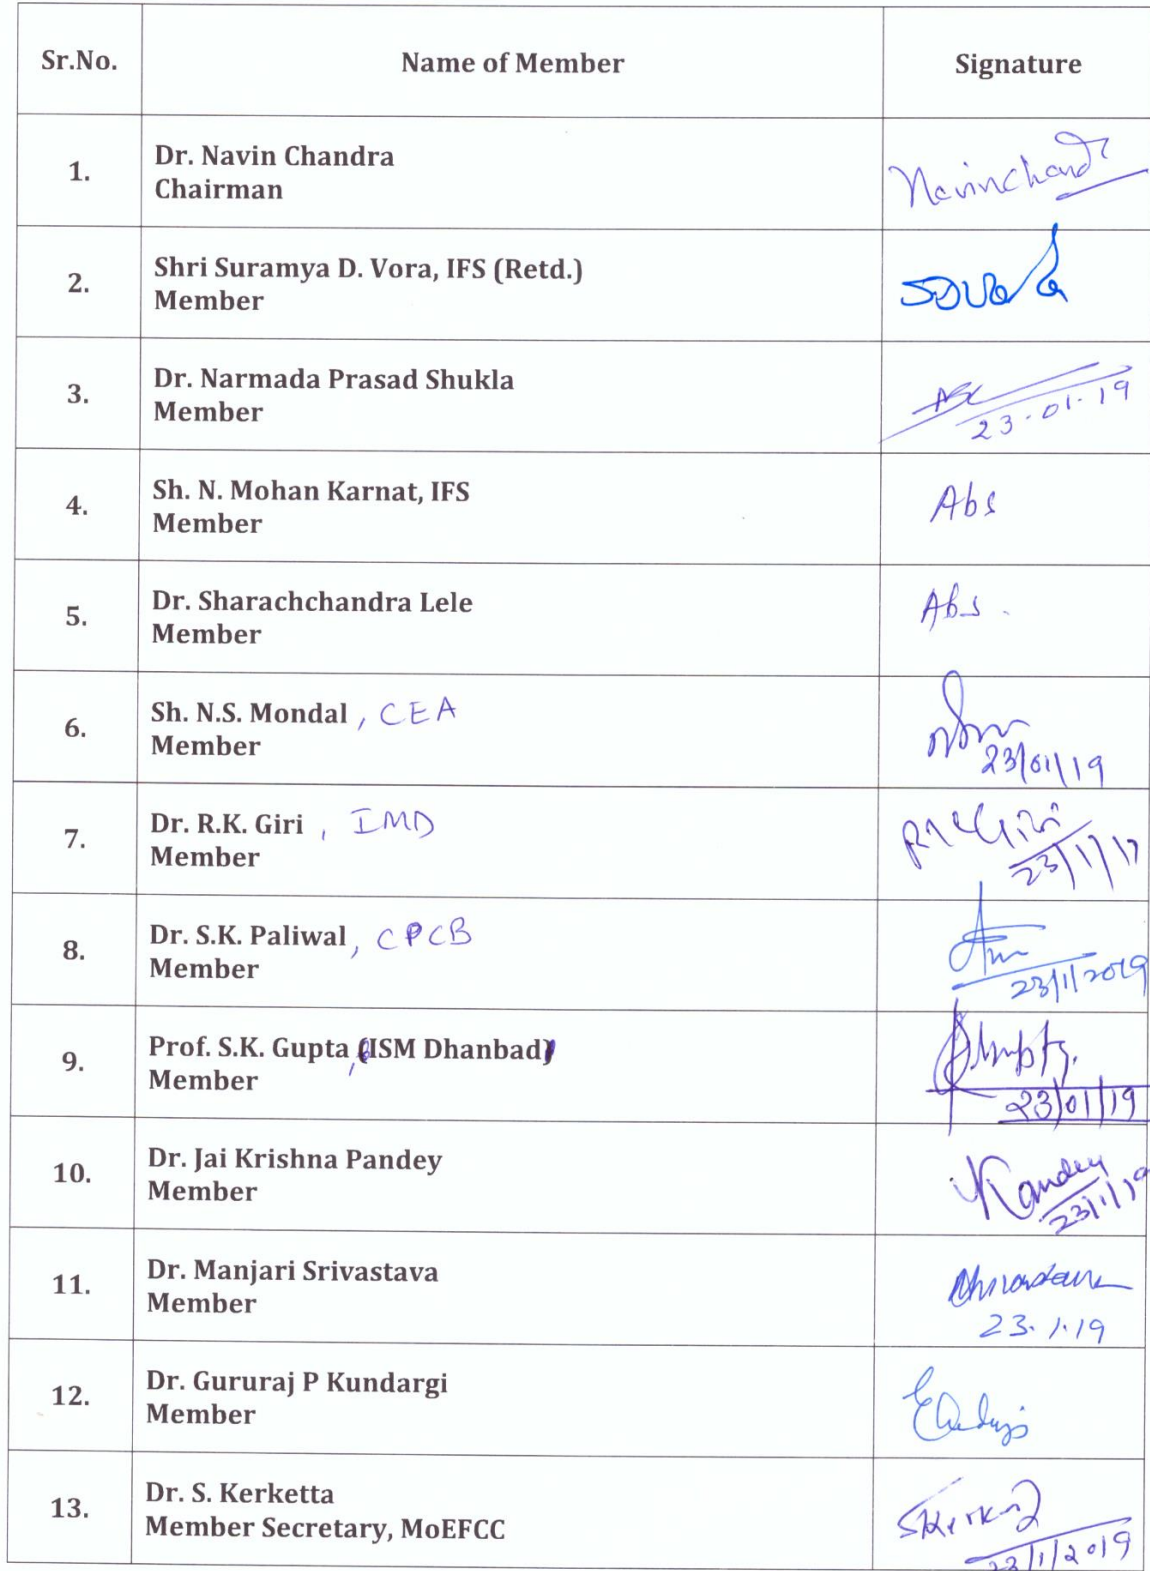 Sr.No. Name of Member Signature
1. Dr. Navin Chandra
Chairman
Navinchand
2. Shri Suramya D. Vora, IFS (Retd.)
Member
3. Dr. Narmada Prasad Shukla
Member
23-01-19
4. Sh. N. Mohan Karnat, IFS
Member
Abs
5. Dr. Sharachchandra Lele
Member
Abs.
6. Sh. N.S. Mondal, CEA
Member
23/01/19
7. Dr. R.K. Giri, IMD
Member
RK Giri
8. Dr. S.K. Paliwal, CPCB
Member
23/1/2019
9. Prof. S.K. Gupta (ISM Dhanbad)
Member
23/01/19
10. Dr. Jai Krishna Pandey
Member
23/1/19
11. Dr. Manjari Srivastava
Member
23.1.19
12. Dr. Gururaj P Kundargi
Member
13. Dr. S. Kerketta
Member Secretary, MoEFCC
23/1/2019